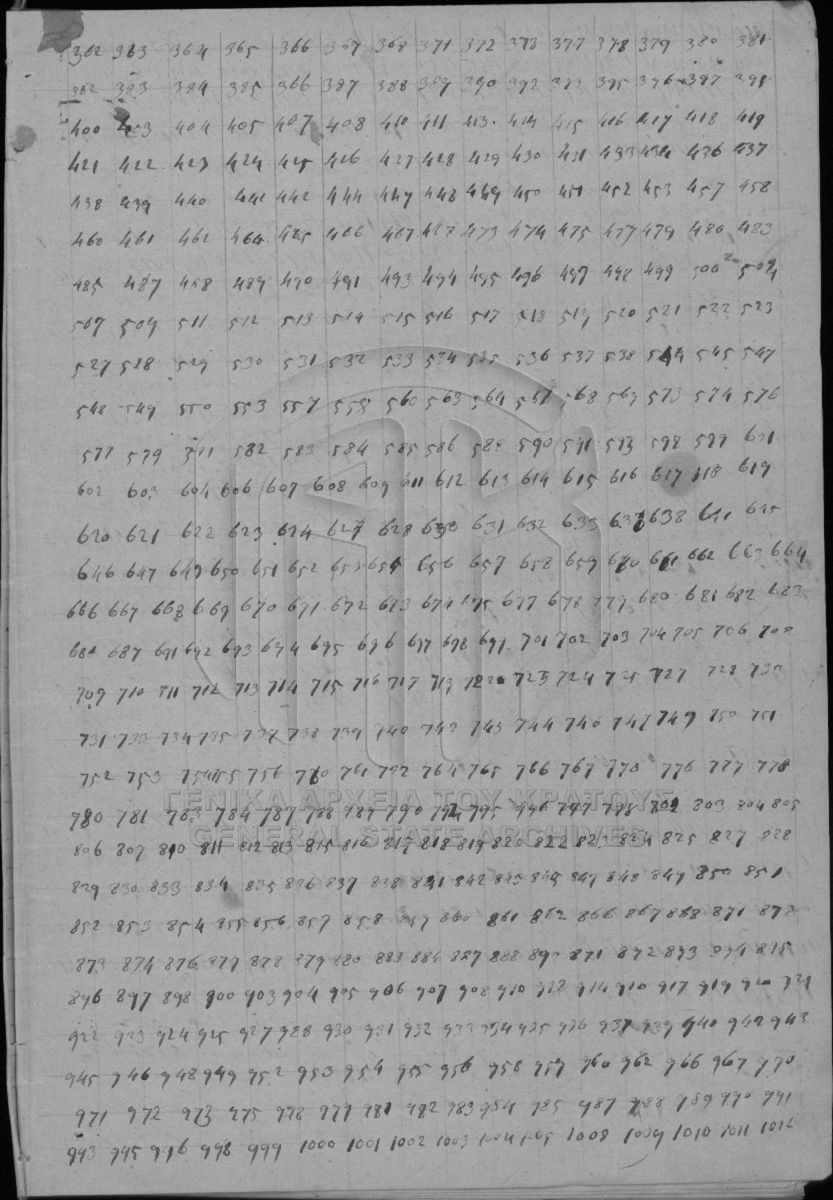 362 363 364 365 366 367 368 371 372 373 377 378 379 380 381
382 383 384 385 386 387 388 389 390 392 393 395 396 397 398
400 403 404 405 407 408 410 411 413 414 415 416 417 418 419
421 422 423 424 425 426 427 428 429 430 431 433 434 436 437
438 439 440 441 442 444 447 448 449 450 451 452 453 457 458
460 461 462 464 465 466 467 473 474 475 477 479 480 483
485 487 488 489 490 491 493 494 495 496 497 498 499 500 504
507 509 511 512 513 514 515 516 517 518 519 520 521 522 523
527 528 529 530 531 532 533 534 535 536 537 538 544 545 547
548 549 550 553 557 558 560 563 564 567 568 569 573 574 576
577 579 581 582 583 584 585 586 588 590 591 593 598 599 601
602 603 604 606 607 608 609 611 612 613 614 615 616 617 618 619
620 621 622 623 624 627 628 630 631 632 633 637 638 641 645
646 647 649 650 651 652 653 654 656 657 658 659 660 661 662 663 664
666 667 668 669 670 671 672 673 674 675 677 678 679 680 681 682 683
684 687 691 692 693 694 695 696 697 698 699 701 702 703 704 705 706 708
709 710 711 712 713 714 715 716 717 719 720 723 724 725 727 728 730
731 733 734 735 737 738 739 740 742 743 744 746 747 749 750 751
752 753 754 755 756 760 761 762 764 765 766 767 770 776 777 778
780 781 783 784 787 788 789 790 794 795 796 797 798 802 803 804 805
ΓΕΝΙΚΑ ΑΡΧΕΙΑ ΤΟΥ ΚΡΑΤΟΥΣ
GENERAL STATE ARCHIVES
806 807 810 811 812 813 815 816 817 818 819 820 822 823 824 825 827 828
829 830 833 834 835 836 837 838 841 842 843 845 847 848 849 850 851
852 853 854 855 856 857 858 859 860 861 862 866 867 868 871 872
873 874 876 877 878 879 880 883 884 887 888 890 891 892 893 894 895
896 897 898 900 903 904 905 906 907 908 910 912 914 916 917 919 920 921
922 923 924 925 927 928 930 931 932 933 934 935 936 937 939 940 942 943
945 946 948 949 952 953 954 955 956 958 959 960 962 966 967 970
971 972 973 975 978 979 981 982 983 984 985 987 988 989 990 991
993 995 996 998 999 1000 1001 1002 1003 1004 1005 1008 1009 1010 1011 1012